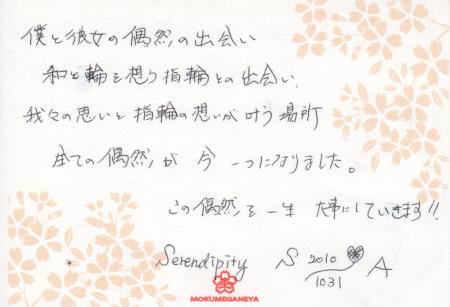 僕と彼女の偶然の出会い
和と輪を想う指輪との出会い、
我々の思いと指輪の想いが叶う場所
全ての偶然が今一つになりました。
この偶然を一生大事にしていきます!!
Serendipity S 2010 1031 A
MOKUMEGANEYA